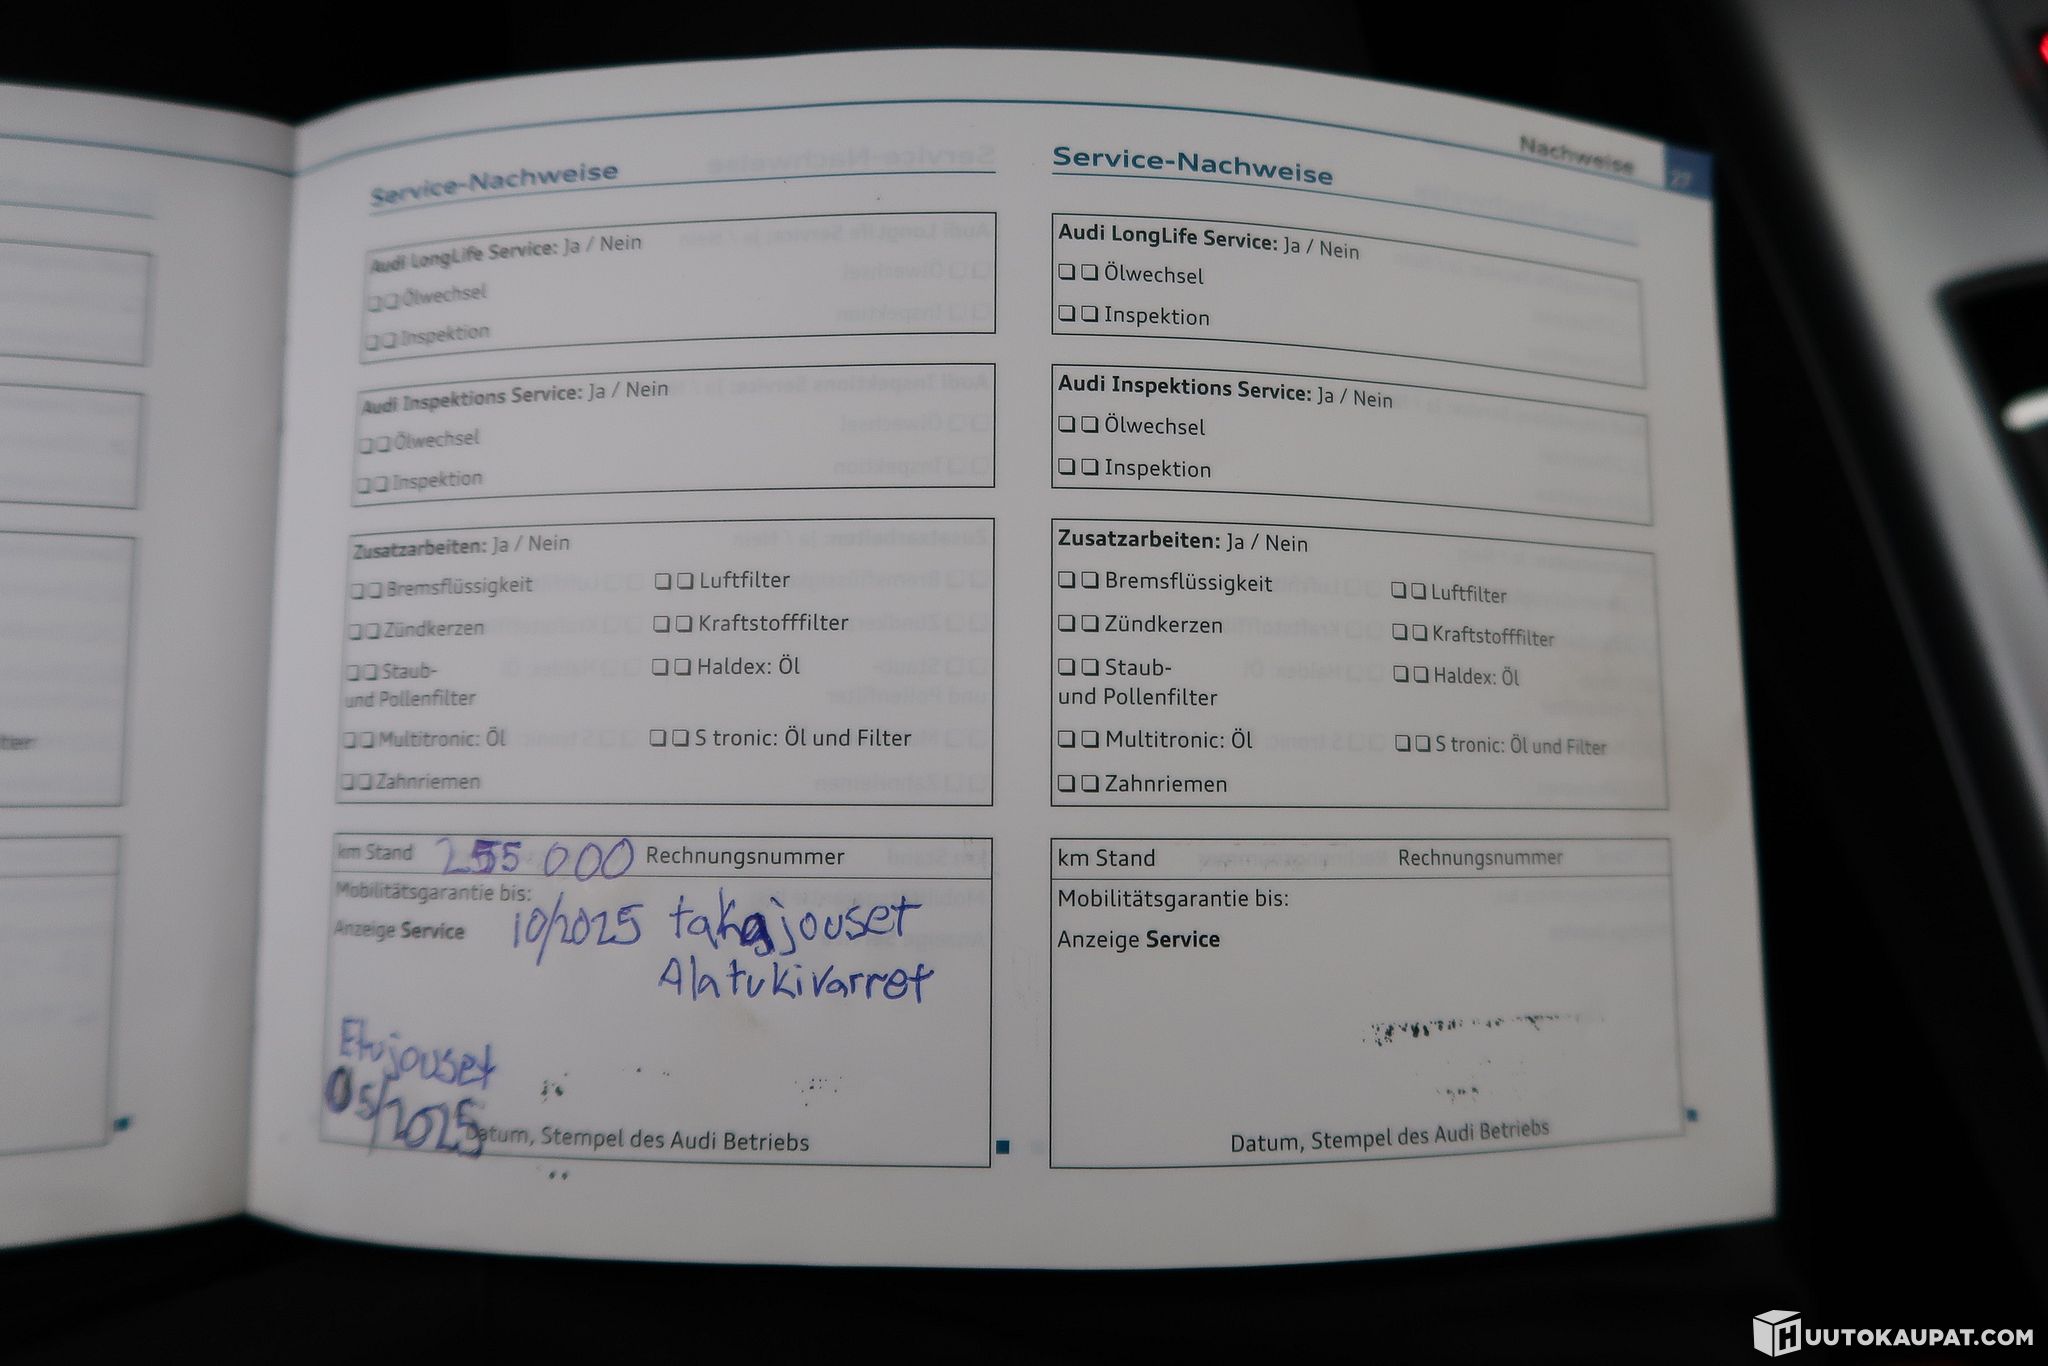 Nachweise 27
Service-Nachweise
Audi LongLife Service: Ja / Nein
❏ ❏ Ölwechsel
❏ ❏ Inspektion
Audi Inspektions Service: Ja / Nein
❏ ❏ Ölwechsel
❏ ❏ Inspektion
Zusatzarbeiten: Ja / Nein
❏ ❏ Bremsflüssigkeit ❏ ❏ Luftfilter
❏ ❏ Zündkerzen ❏ ❏ Kraftstofffilter
❏ ❏ Staub- ❏ ❏ Haldex: Öl
und Pollenfilter
❏ ❏ Multitronic: Öl ❏ ❏ S tronic: Öl und Filter
❏ ❏ Zahnriemen
km Stand 255 000 Rechnungsnummer
Mobilitätsgarantie bis:
Anzeige Service 10/2025 takajouset
Alatukivarret
Etujouset
05/2025
Datum, Stempel des Audi Betriebs
Service-Nachweise
Audi LongLife Service: Ja / Nein
❏ ❏ Ölwechsel
❏ ❏ Inspektion
Audi Inspektions Service: Ja / Nein
❏ ❏ Ölwechsel
❏ ❏ Inspektion
Zusatzarbeiten: Ja / Nein
❏ ❏ Bremsflüssigkeit ❏ ❏ Luftfilter
❏ ❏ Zündkerzen ❏ ❏ Kraftstofffilter
❏ ❏ Staub- ❏ ❏ Haldex: Öl
und Pollenfilter
❏ ❏ Multitronic: Öl ❏ ❏ S tronic: Öl und Filter
❏ ❏ Zahnriemen
km Stand Rechnungsnummer
Mobilitätsgarantie bis:
Anzeige Service
Datum, Stempel des Audi Betriebs
HUUTOKAUPAT.COM